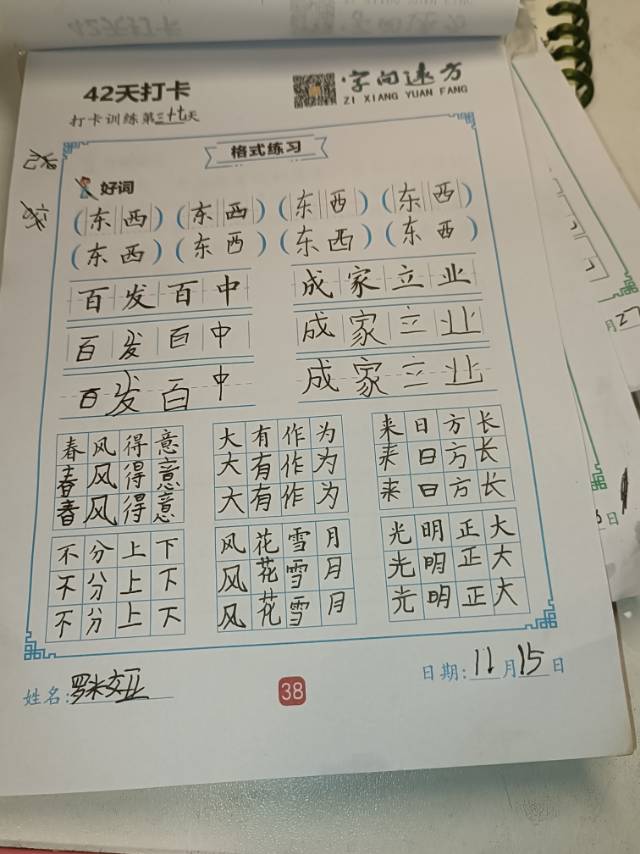 42天打卡
字向速方
ZI XIANG YUAN FANG
打卡训练第三十七天
格式练习
好词
(东西) (东西) (东西) (东西)
(东西) (东西) (东西) (东西)
百发百中 成家立业
百发百中 成家立业
百发百中 成家立业
春风得意 大有作为 来日方长
春风得意 大有作为 来日方长
春风得意 大有作为 来日方长
不分上下 风花雪月 光明正大
不分上下 风花雪月 光明正大
不分上下 风花雪月 光明正大
姓名:
38
日期:11月15日
月27
日